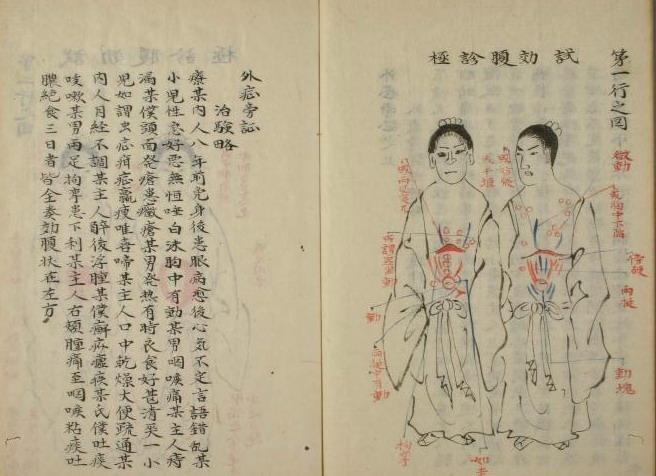 第一行之図
試効腹診極
微動
痞硬
動塊
動
拘攣
外症旁証
治験略
療某内人八年前免身後患眼病愈後心気不定言語錯乱某
小児性急好悪無恒唾白沫胸中有動某男咽喉痛某主人痔
漏某僕頭面発瘡患黴瘡某男発熱有時良食好甚消某一小
児如謂虫症疳症羸痩唯喜啼某主人口中乾燥大便疏通某
内人月経不調某主人酔後浮腫某僕癬疥瘟疾某氏僕吐痰
咳嗽某男両足拘攣患下利某主人右頬腫痛至咽喉粘痰吐
膿絶食三日者皆全奏効腹状在左方